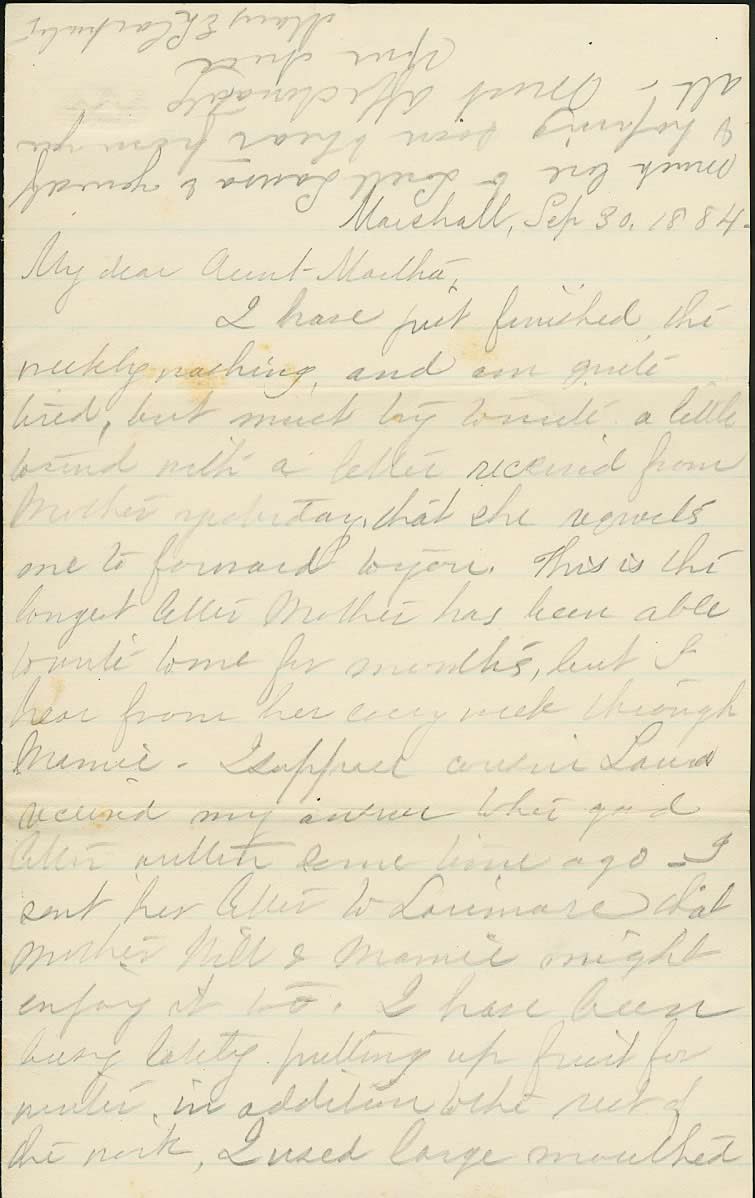 Marshall, Sep 30. 1884-
My dear Aunt Martha,
I have just finished the
weekly washing, and am quite
tired, but must try to write a little
to send with a letter received from
Mother yesterday, that she requests
me to forward to you. This is the
longest letter Mother has been able
to write to me for months, but I
hear from her every week through
Mamie - I suppose cousin Laura
received my answer to her good
letter written some time ago - I
sent her letter to Larimore that
Mother Will & Mamie might
enjoy it too. I have been
busy lately putting up fruit for
winter, in addition to the rest of
the work, I used large mouthed
Much love to Laura & yourself
& hoping soon to hear from you
all - Most affectionately
Your niece
Mary E